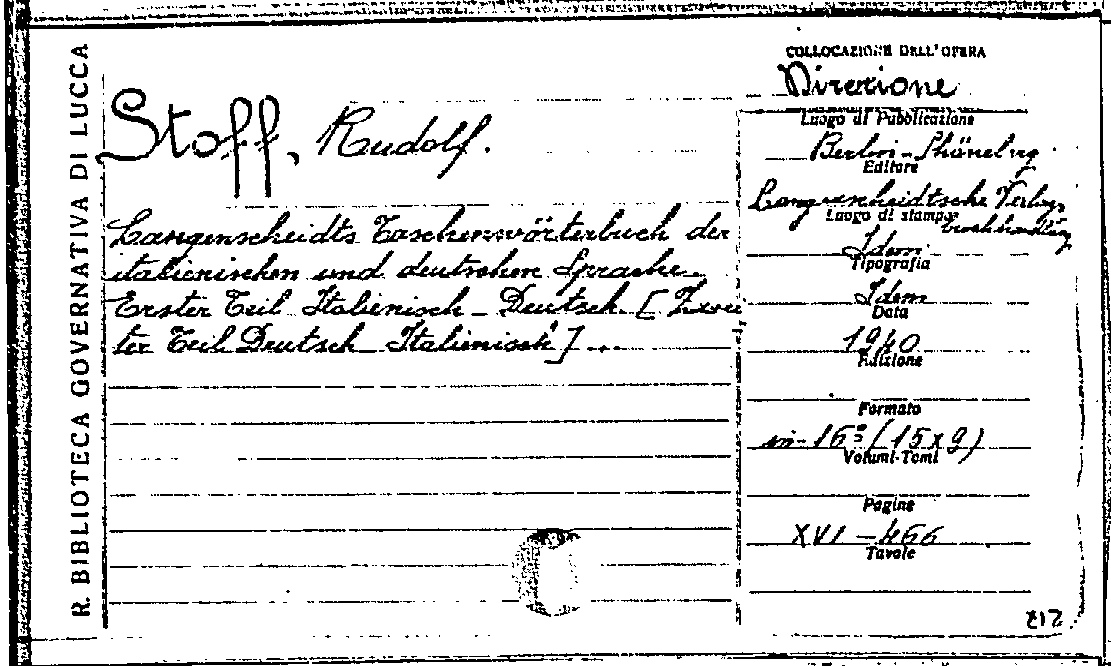 R. BIBLIOTECA GOVERNATIVA DI LUCCA
Stoff, Rudolf.
Langenscheidts Taschenwörterbuch der
italienischen und deutschen Sprache.
Erster Teil Italienisch - Deutsch. [Zwei
ter Teil Deutsch Italienisch] ...
COLLOCAZIONE DELL'OPERA
Direzione
Luogo di Pubblicazione
Berlin - Shöneberg
Editore
Langenscheidtsche Verlags
buchhandlung
Luogo di stampa
Idem
Tipografia
Idem
Data
1940
Edizione
Formato
in-16º (15x9)
Volumi-Tomi
Pagine
XVI - 466
Tavole